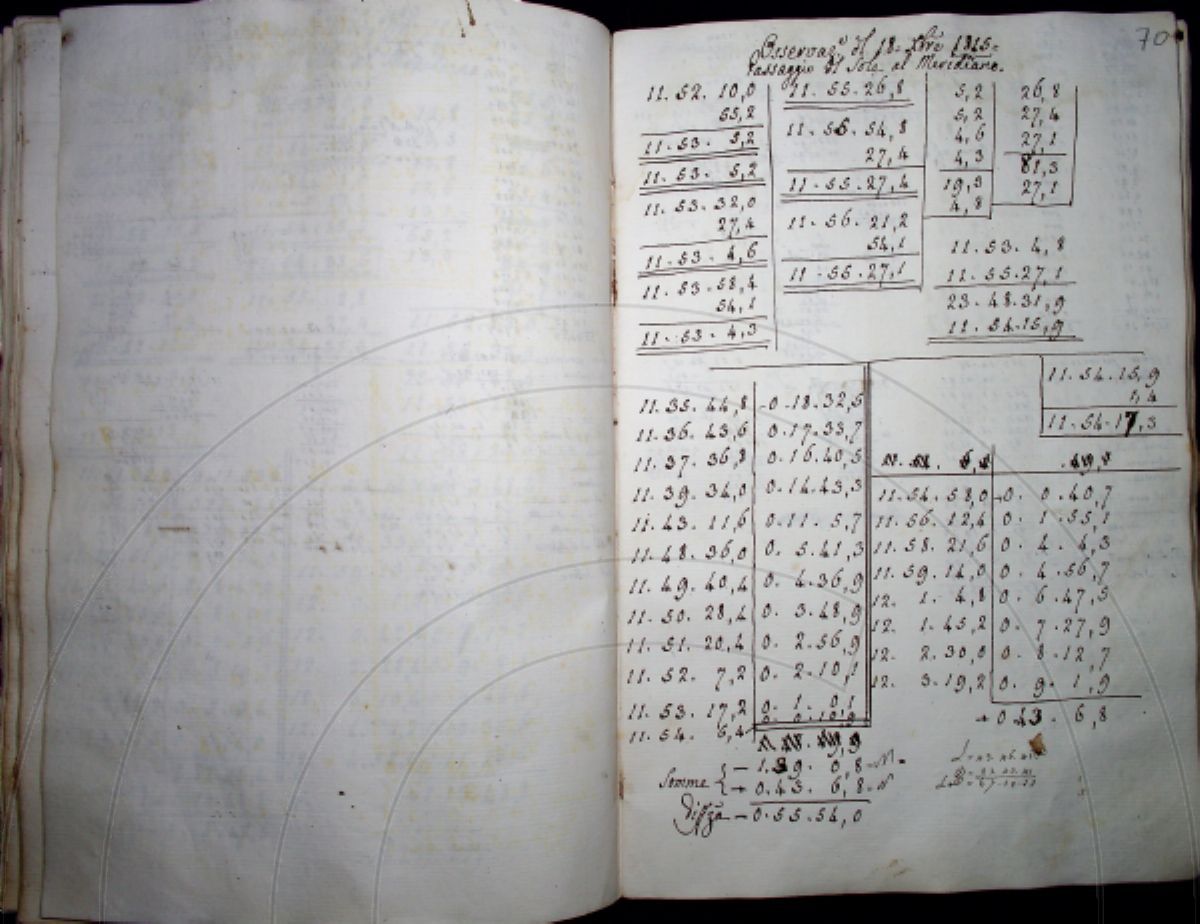 70
Osservaz.e d.l 18. Xbre 1815.
Passaggio d.l Sole al Meridiano.
11. 52. 10,0
55,2
11. 53. 5,2
11. 53. 5,2
11. 53. 32,0
27,4
11. 53. 4,6
11. 53. 58,4
54,1
11. 53. 4,3
11. 55. 26,8
11. 56. 54,8
27,4
11. 55. 27,4
11. 56. 21,2
54,1
11. 55. 27,1
5,2
5,2
4,6
4,3
19,3
4,8
26,8
27,4
27,1
81,3
27,1
11. 53. 4,8
11. 55. 27,1
23. 48. 31,9
11. 54. 15,9
11. 54. 15,9
1,4
11. 54. 17,3
11. 35. 44,8 -0. 18. 32,5
11. 36. 43,6 0. 17. 33,7
11. 37. 36,8 0. 16. 40,5
11. 39. 34,0 0. 14. 43,3
11. 43. 11,6 0. 11. 5,7
11. 48. 36,0 0. 5. 41,3
11. 49. 40,4 0. 4. 36,9
11. 50. 28,4 0. 3. 48,9
11. 51. 20,4 0. 2. 56,9
11. 52. 7,2 0. 2. 10,1
11. 53. 17,2 0. 1. 0,1
11. 54. 6,4 0. 0. 10,9
11. 54. 58,0 +0. 0. 40,7
11. 56. 12,4 0. 1. 55,1
11. 58. 21,6 0. 4. 4,3
11. 59. 14,0 0. 4. 56,7
12. 1. 4,8 0. 6. 47,5
12. 1. 45,2 0. 7. 27,9
12. 2. 30,0 0. 8. 12,7
12. 3. 19,2 0. 9. 1,9
+ 0. 43. 6,8
Somme { - 1. 39. 0,8
+ 0. 43. 6,8
Diffza - 0. 55. 54,0